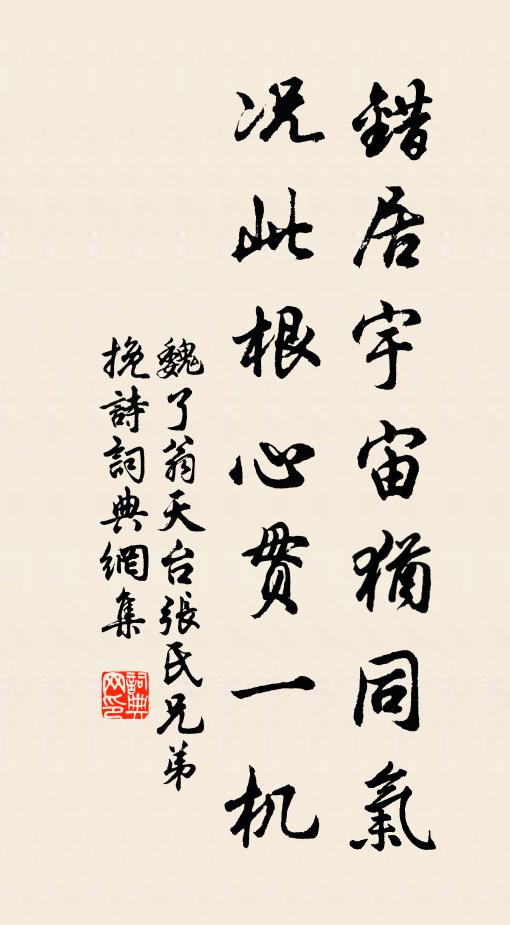 錯居宇宙猶同氣
况此根心贯一机
魏了翁天台張氏兄弟
挽詩詞典網集
詞典
网印